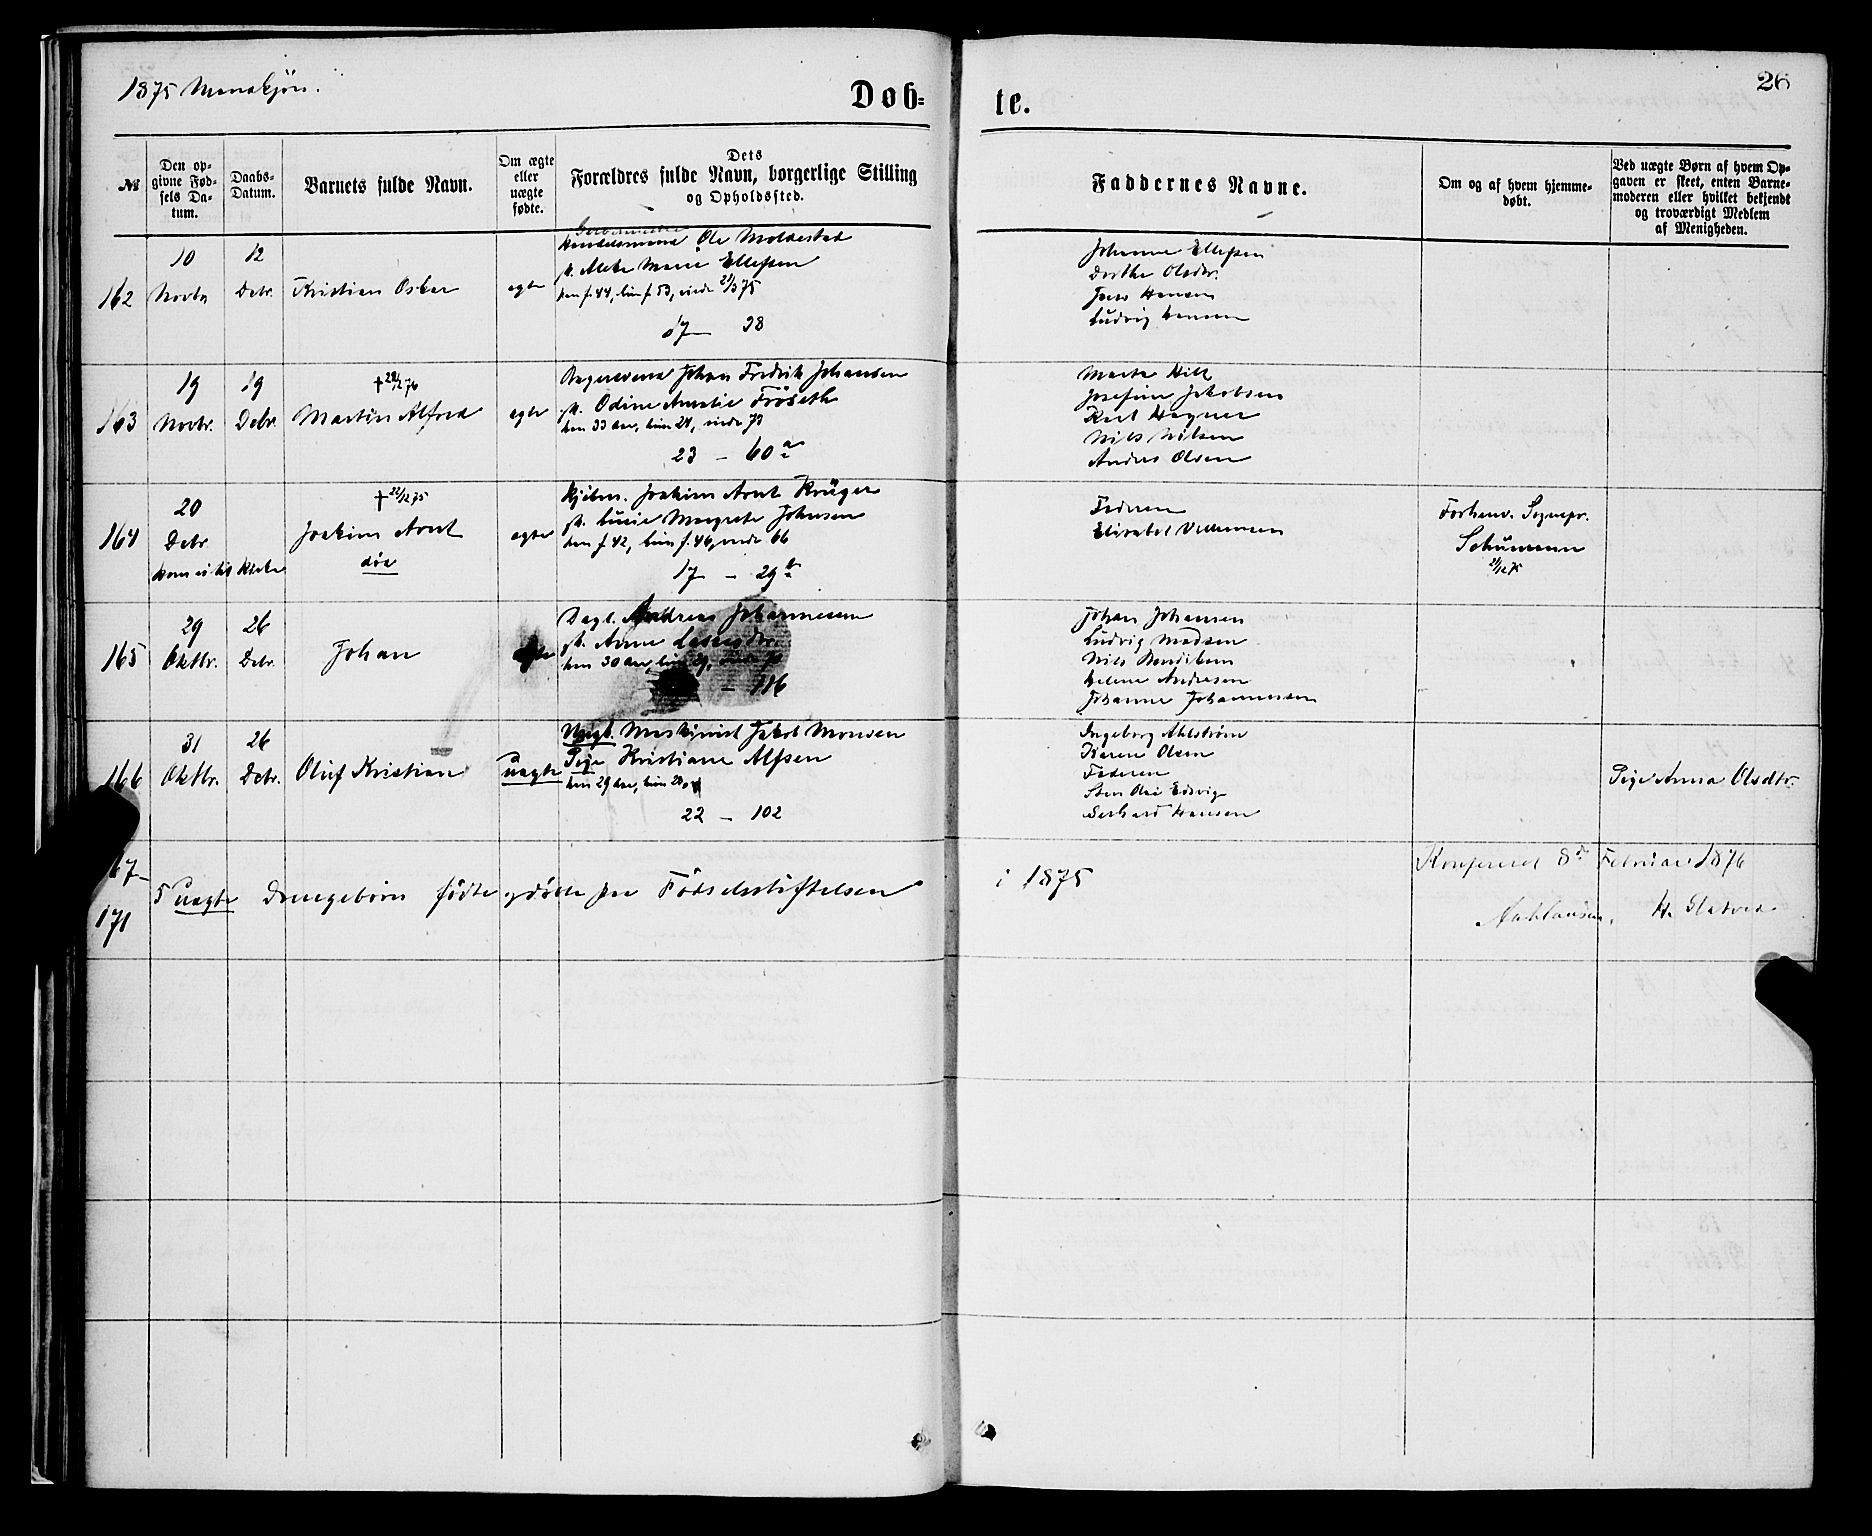 1875 Mandkjøn.
Døb-
te.
26
№
Den op-
givne Fød-
sels Da-
tum.
Daabs-
Datum.
Barnets fulde Navn.
Om ægte
eller
uægte
fødte.
Dets
Forældres fulde Navn, borgerlige Stilling
og Opholdssted.
Faddernes Navne.
Om og af hvem hjemme-
døbt.
Ved uægte Børn af hvem Op-
gaven er skeet, enten Barne-
moderen eller hvilket bekjendt
og troværdigt Medlem
af Menigheden.
162
10
Novbr
12
Debr.
Kristian Oskar
egte
Handelsmand Ole Moldestad
Marie Ellefsen
han f. 44, hun f. 53, viede
17 38
Johanne Ellefsen
Dorthe Olsdtr.
Hansen
Ludvig Hansen
163
19
Novbr.
19
Debr.
†
Martin Alfred
egte
Johan Fredrik Johansen
Odine Amalie Frøseth
han 33 aar, hun 24, viede 73
23 – 60 a
Marta
Josefine Jakobsen
Karl Wagner
Nils Nilsen
Andreas Olsen
164
20
Debr
kom ei til Kirke
† 22/12 75
Joakim Arnt
død
egte
Kjøbm. Joakim Arnt Krüger
Margrete Johnsen
han f. 42, hun f. 46, viede 66
17 – 29 b
Faderen
Elisabet Villumsen
Forhenv. Sognepr.
Schumann
21/12 75
165
29
Oktbr.
26
Debr.
Johan
egte
Dagl. Andreas Johannesen
Anne
han 30 aar, hun 29,
– 116
Johan Johansen
Ludvig Madsen
Nils Bendiksen
Helene Andresen
Johanne Johannessen
166
31
Oktbr.
26
Debr.
Oluf Kristian
uegte
Ungk. Maskinist Jakob Monsen
Pige Kristiane Alfsen
han 29 aar, hun 20
22 – 102
Ingeborg Ahlstrøm
Karen Olsen
Faderen
Sten Ole Edvig
Gerhard Hansen
Pige Anna Olsdtr.
167–
171
5 uegte Drengebørn fødte og døbte paa Fødselsstiftelsen
i 1875
Konfereret 8de Februar 1876